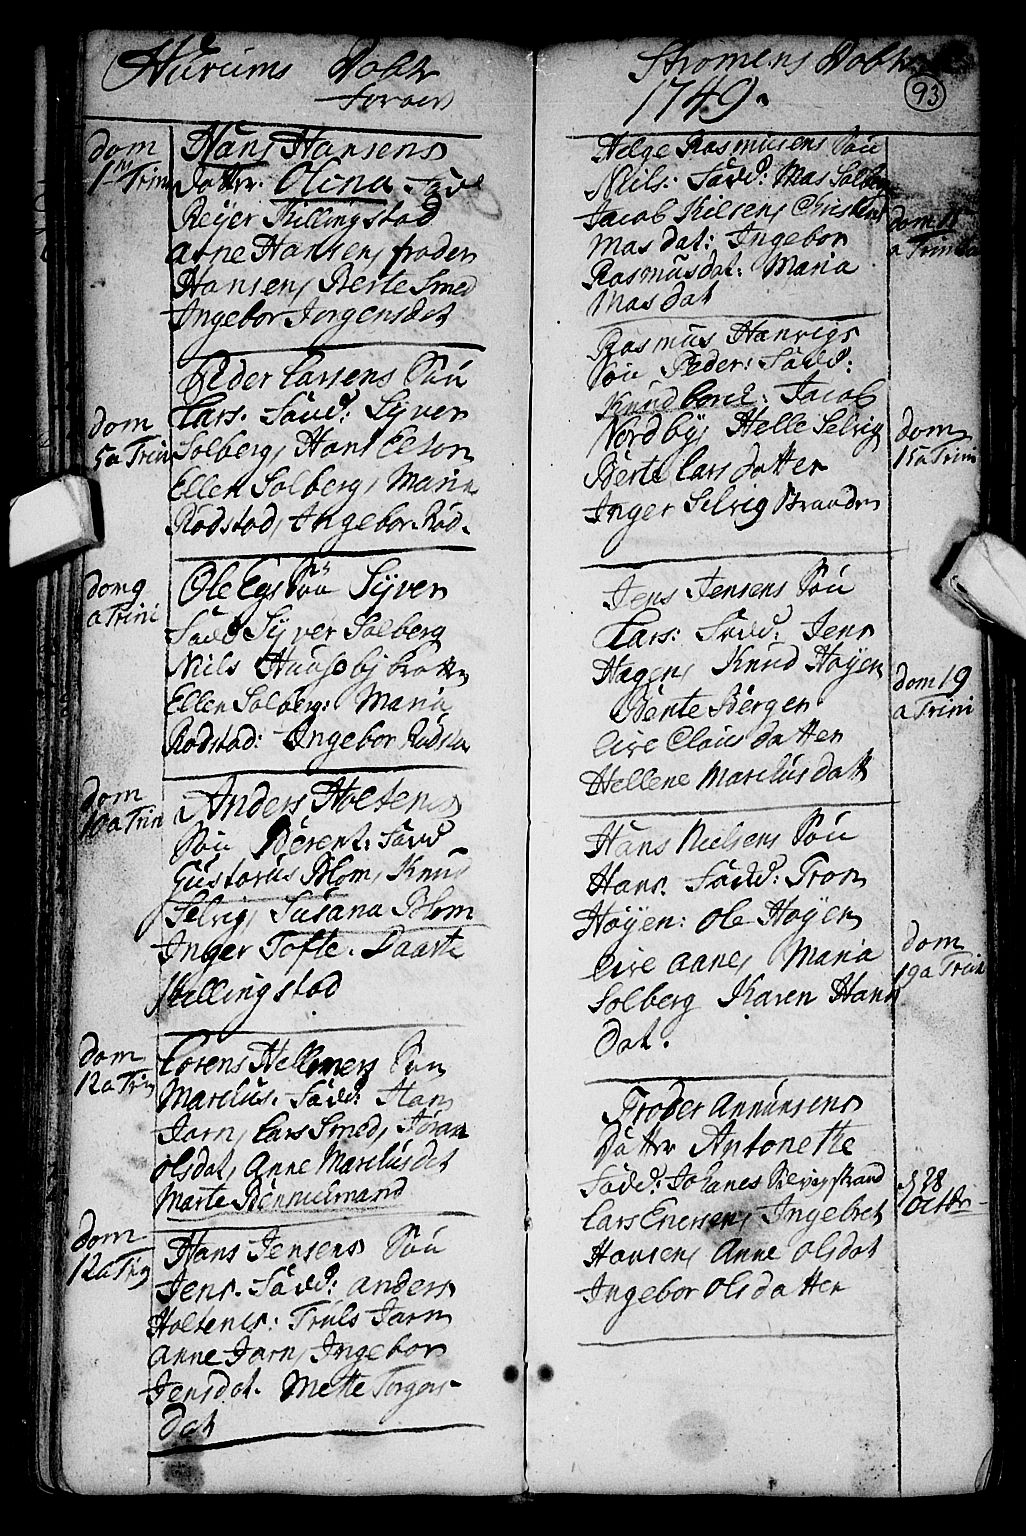 Hurums Dobte
Strömens Dobte
1749.
93
dom
1 Trin
Hans Hansens
datter: Olina fadd
Reyer Killingstad
Anne Hansen, froder
Hansen, Berte Smed
Ingebor Jorgensdat
dom
5 a Trin
Peder Larsens Søn
Lars. Fadd: Syver
Solberg, Hans Elson
Ellen Solberg, Maria
Rødstad, Ingebor Rød-
dom 9
a Trini
Ole Søn Syver
Fadd Syver Solberg
Niels
Ellen Solberg: Maria
Rødstad: Ingebor Rødsta
dom
10 a Trin
Anders Holtens
Søn Berent: Fadd
Gustavus Blom, Knud
Selvig, Susana Blom
Inger Tofte. Paarte
Killingstad
dom
12 a Trin
Lorens Hellmers Søn
Marcus. Fadd: Hans
Jarn, Lars Smed, Joran
Olsdat, Anne Marcusdat
Marte
dom
12 a Trin
Hans Jensens Søn
Jens. Fadd: Anders
Holtens: Truls Jarn
Anne Jarn, Ingebor
Jensdat. Mette Torgers-
dat
Helge Rasmusens Søn
Niels: Fadd: Mas Solberg
Jacob Nilsen, Christens
Masdat: Ingebor
Rasmusdat: Maria
Masdat
dom 11
a Trinita
Rasmus Hanvigs
Søn Peder: Fadd:
Knud borch: Jacob
Nordby, Helle Selvig
Berte Larsdatter
Inger Selvig
dom
15 a Trin
Jens Jensens Søn
Lars: Fadd: Jens
Hagen, Knud Høyen
Bente Berger
Live Claus datter
Hellene Marcusdatt
dom 19
a Trini
Hans Nielsens Søn
Hans. Fadd: Tron
Høyen: Ole Høyen
Live aanes Maria
Solberg Karen Hans
dat.
dom
19 a Trin
Froder Annunsens
Datter Antonette
Fadd: Johanes
Lars Enersen, Ingebret
Hansen, Anne Olsdat
Ingebor Olsdatter
d 28
Octbr